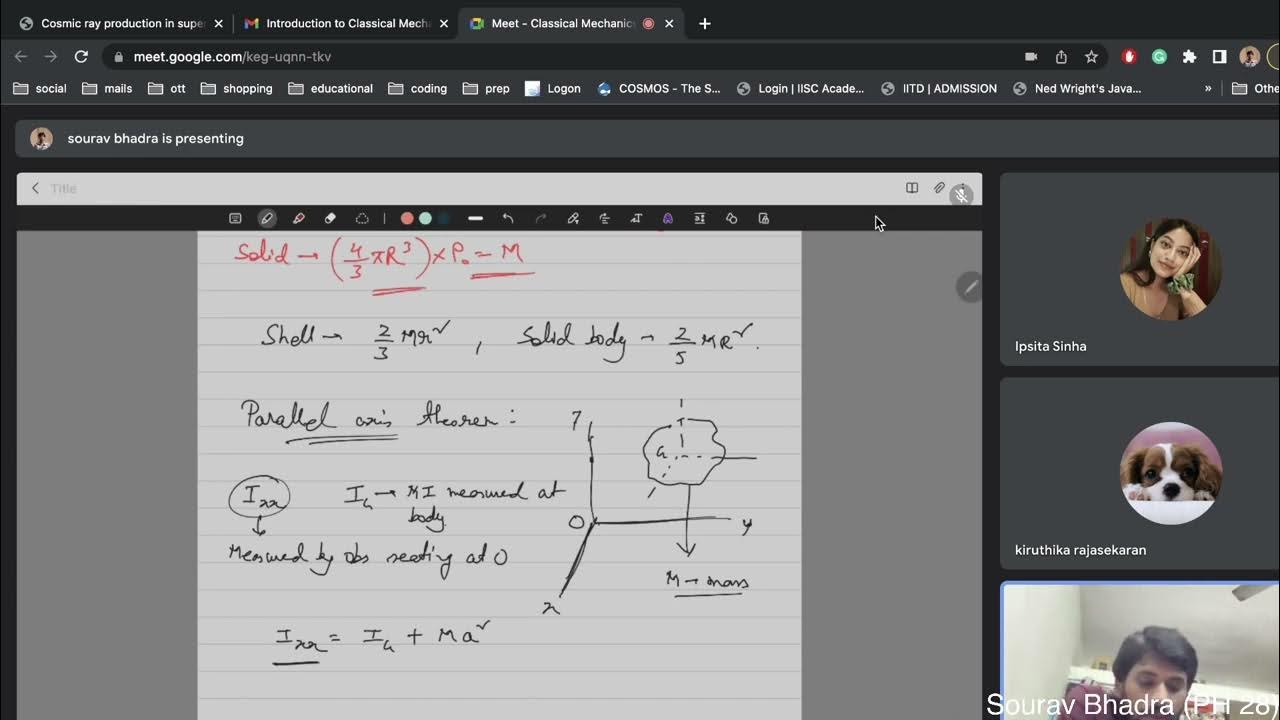 Cosmic ray production in supe
Introduction to Classical Mech
Meet - Classical Mechanic
meet.google.com/keg-uqnn-tkv
social
mails
ott
shopping
educational
coding
prep
Logon
COSMOS - The S...
Login | IISC Acade...
IITD | ADMISSION
Ned Wright's Java...
»
Othe
sourav bhadra is presenting
Title
Solid → (4/3 πR³) × ρ₀ = M
Shell → 2/3 Mr², Solid body → 2/5 MR².
Parallel axis theorem :
Z
G
I_xx
I_G → MI measured at
body
O
y
Measured by obs seeting at O
M → mass
x
I_xx = I_G + Ma²
Ipsita Sinha
kiruthika rajasekaran
Sourav Bhadra (PH 28)